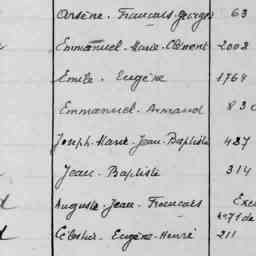 Arsène - Francois-Georges 63
Emmanuel-Marie-Clément 2002
Emile - Eugène 1764
Emmanuel - Armand 830
Joseph-Marie-Jean-Baptiste 487
Jean - Baptiste 314
Auguste-Jean-Francois Exc
Célestin - Eugène-Henri 211